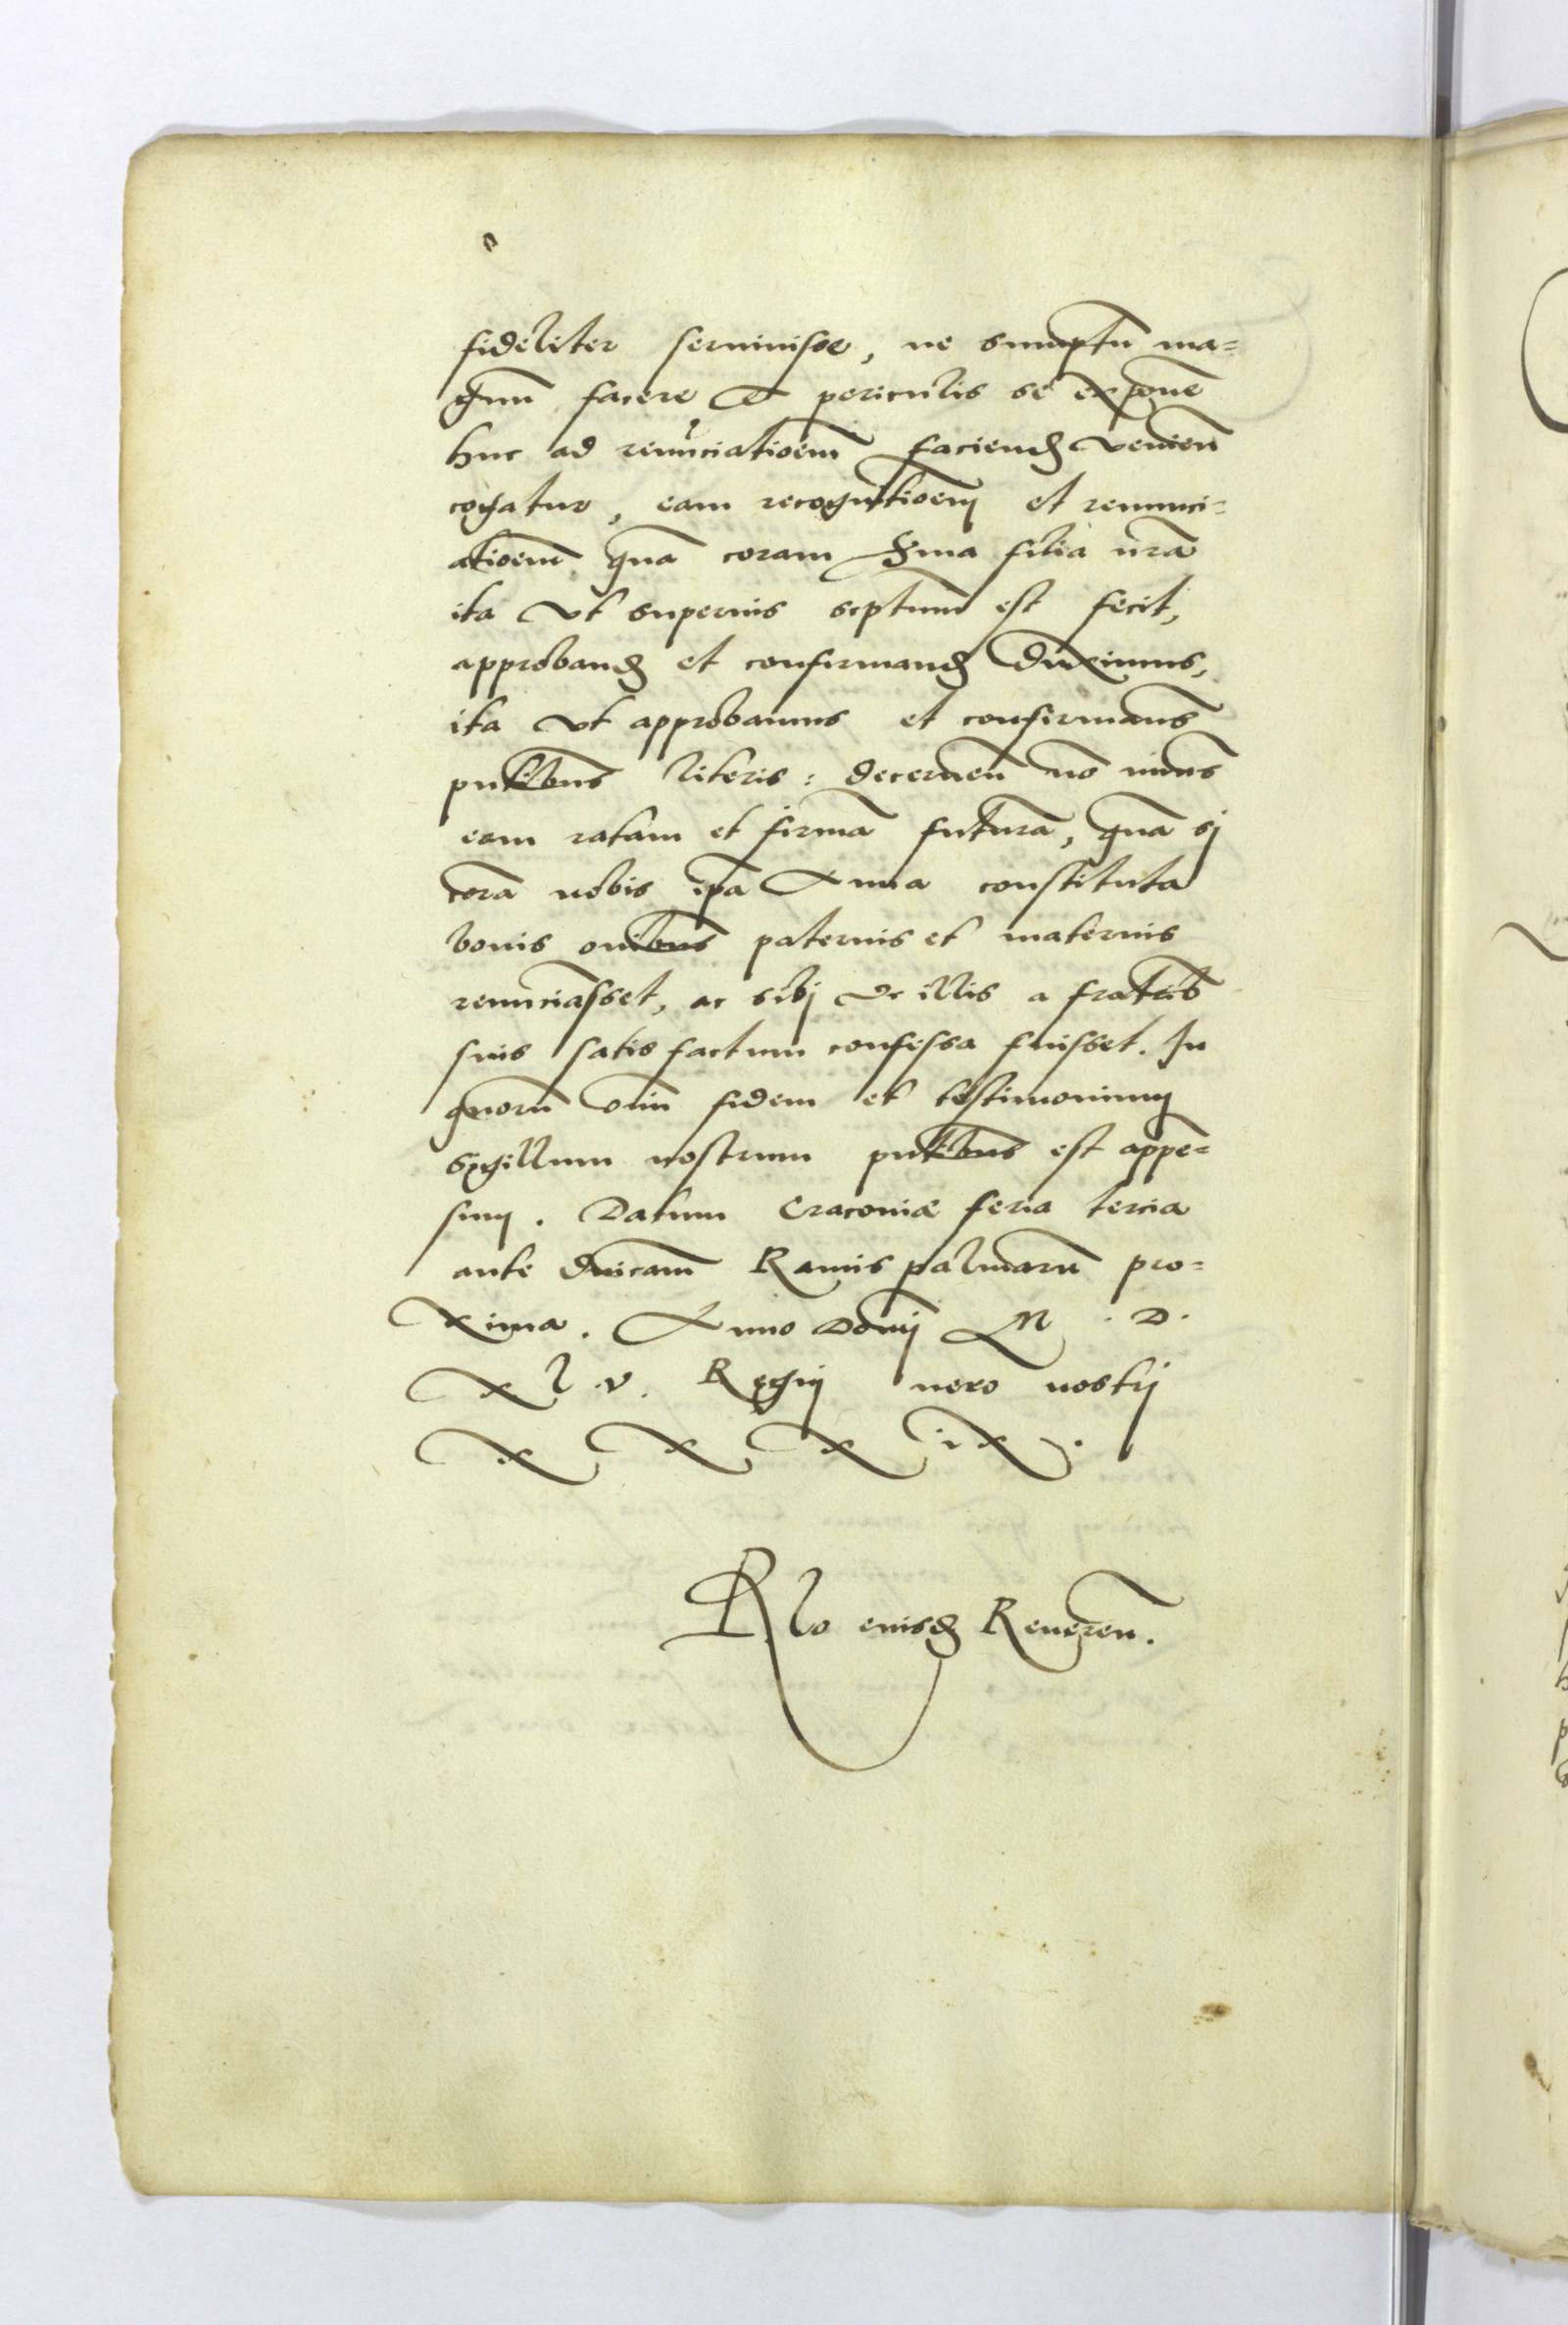 fideliter seruiuisse, ne sumptū ma=
gnū facere et periculis se expone
huc ad renūciatioem̄ faciend̨ venien̄
cogatur, eam recognitioem̄ et renunci=
atioem̄ quā coram S̄ma filia n̄ra
ita vt superius scptum est fecit,
approband̨ et confirmand̨ duximus,
ita vt approbamus et confirmam̄s
pn̄tibus literis: decernen̄ nō min̄s
eam ratam et firmā futurā, quā sj
corā nobis ip̄a Anna constituta
bonis on̄ibus paternis et maternis
renunciasset, ac sibj de illis a fratrib
suis satis factum confessa fuisset. In
quorū om̄i fidem et testimonium
sigillum nostrum pn̄tibus est appe=
sum. Datum Cracoviæ feria tercia
ante Dn̄icam Ramis palmarū pro=
xima. Anno Domj M . D.
X l . v . Regnj vero nostrj
X X X ix .
Rl̄o eiusd̨ Reueren̄.